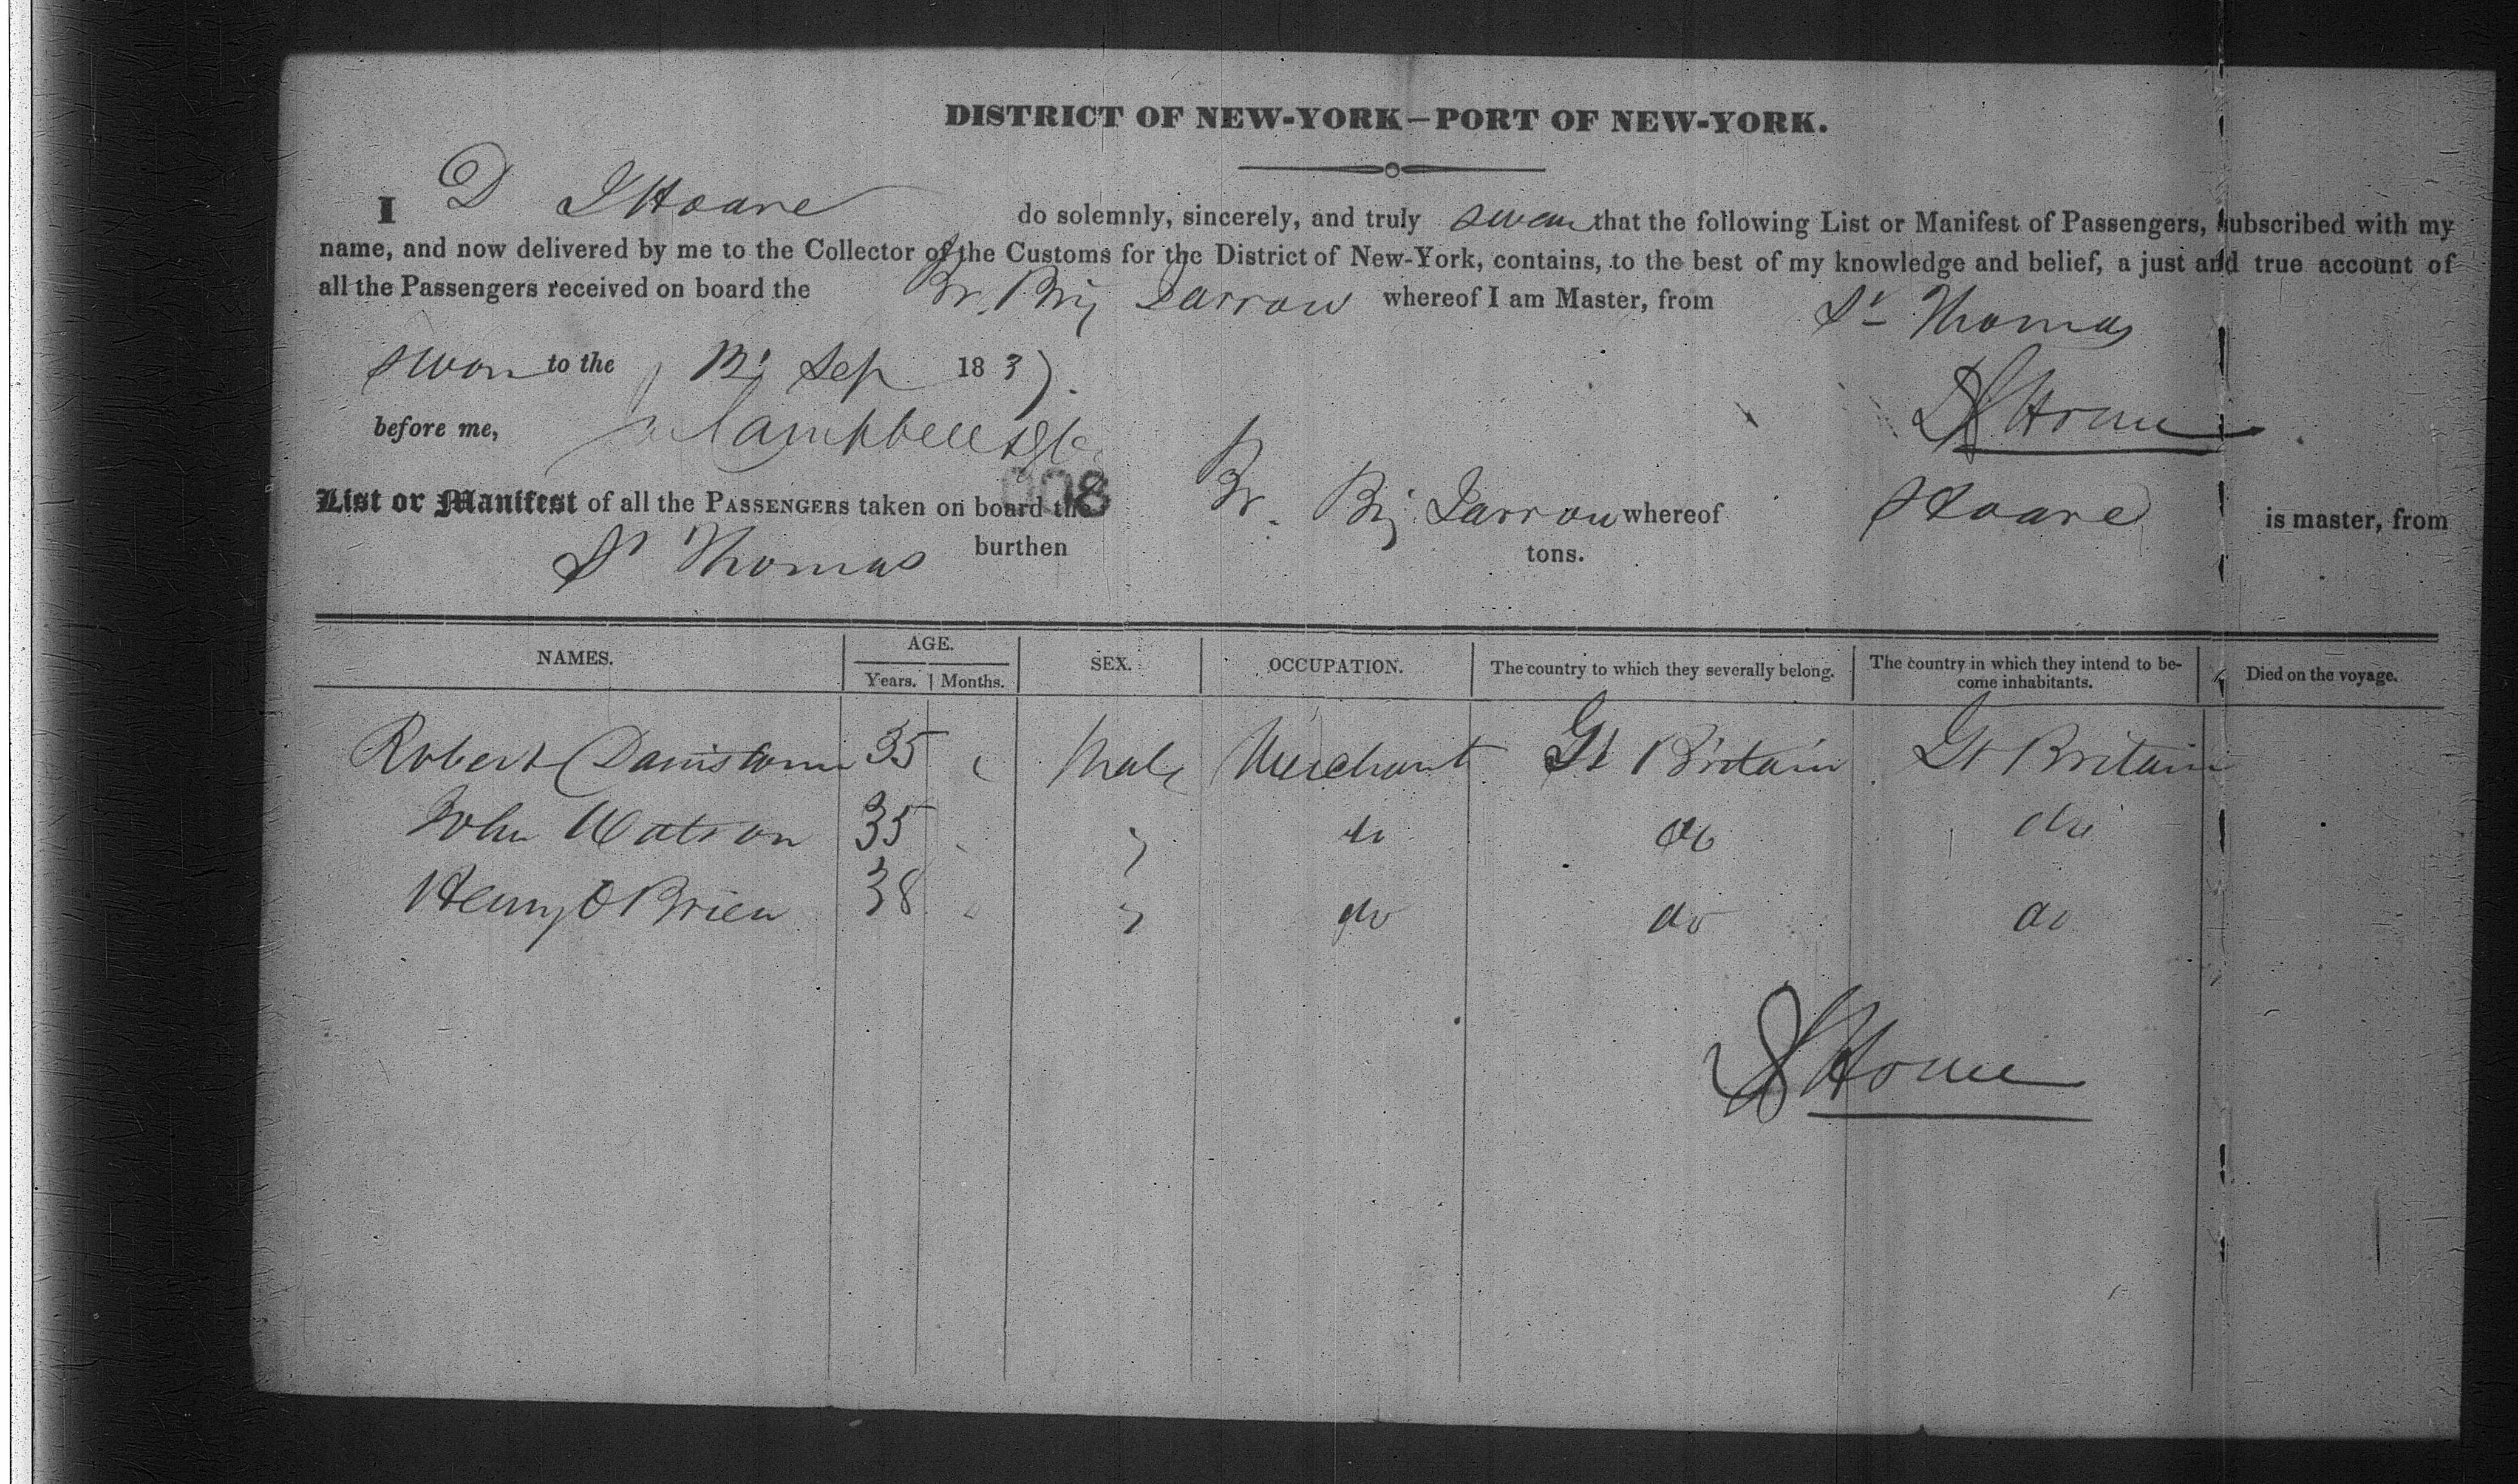 DISTRICT OF NEW-YORK—PORT OF NEW-YORK.
I D J Hoare do solemnly, sincerely, and truly swear that the following List or Manifest of Passengers, subscribed with my
name, and now delivered by me to the Collector of the Customs for the District of New-York, contains, to the best of my knowledge and belief, a just and true account of
all the Passengers received on board the Br. Brig Jarrow whereof I am Master, from St Thomas
sworn to the Sep 1837.
before me, Campbell
D J Hoare
008
List or Manifest of all the PASSENGERS taken on board the Br. Brig Jarrow whereof Hoare is master, from
St Thomas burthen tons.
NAMES. AGE. SEX. OCCUPATION. The country to which they severally belong. The country in which they intend to be- Died on the voyage.
Years. Months. come inhabitants.
Robert 35 Male Merchant Gt Britain Gt Britain
John Watson 35 " do do do
Henry O Brien 38 " do do do
D J Hoare